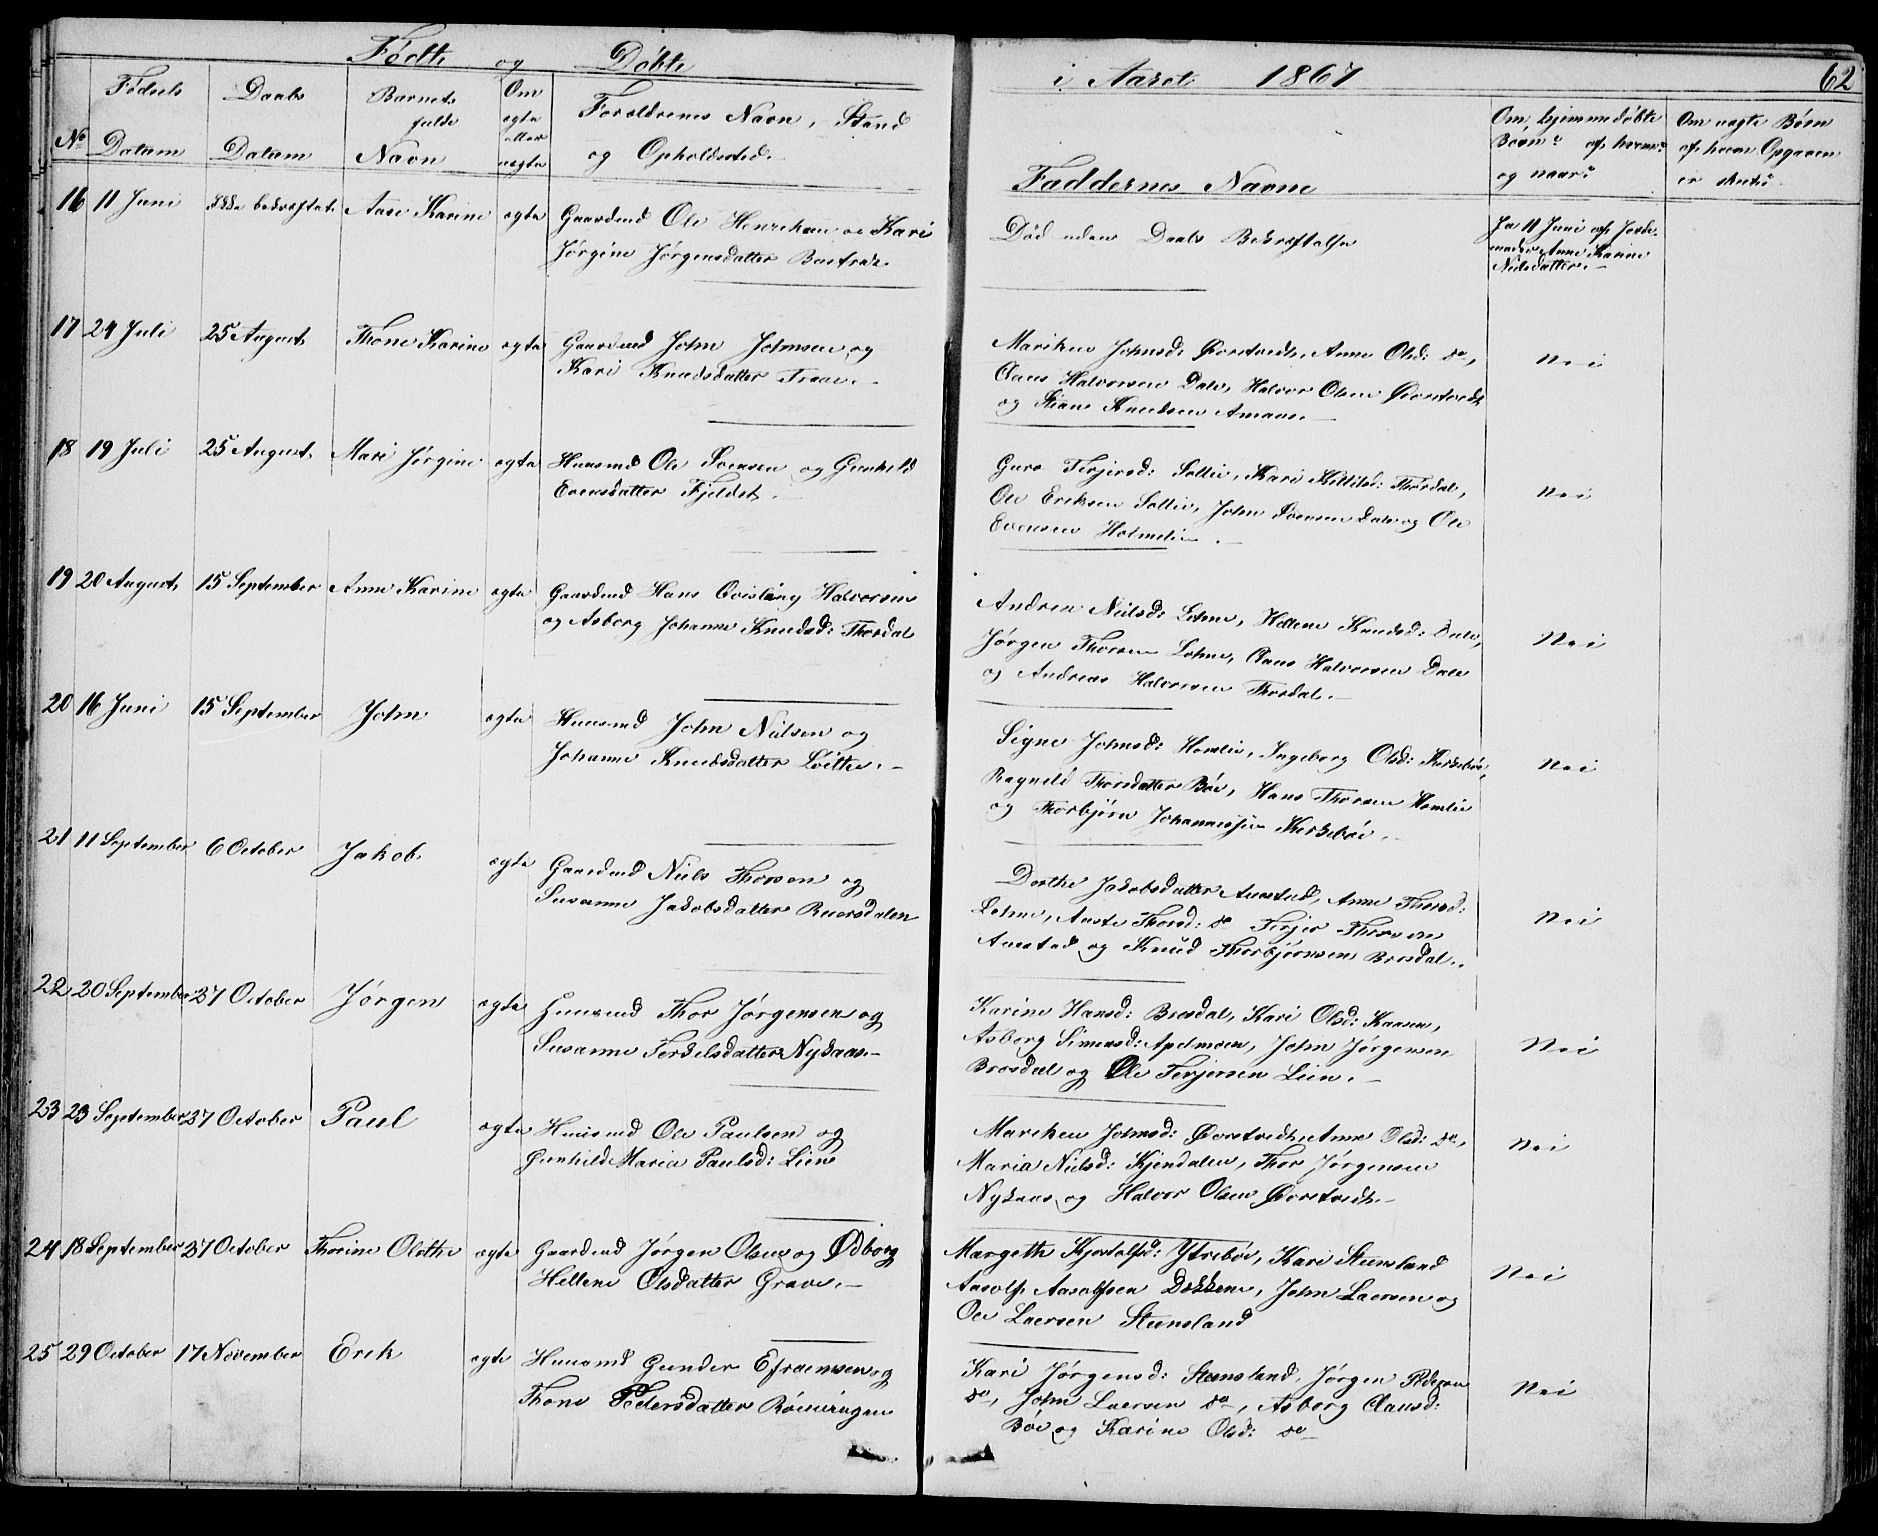 Födte og Döbte i Aaret 1867 62
No Fødsels Datum Daabs Datum Barnets fulde Navn Om ægte eller uægte Foræeldrenes Navn, Stand og Opholdssted. Faddernes Navne Om hjemmedøbte Børn: af hvem og naar? Om uægte Børn af hvem Opgaven er skeet?
16 11 Juni Ikke bekræftet Aase Karine ægte Gaardmd Ole Henrekson og Kari
Jörgine Jörgensdatter
Död uden Daabs Bekræftelse
Ja 11 Juni af Jorde-
moder Anne Karine
Nielsdatter.
17 24 Juli 25 August Thone Karine ægte Gaardmd John Johnsen og
Kari Knudsdatter Traae.
Mariken Johnsd: Övretvedt, Anne Olsd: do,
Claus Halvorsen Dale, Halvor Olsen Övretvedt
og Knudsen
Nei
18 19 Juli 25 August Mari Jörgine ægte Huusmd Ole Svensen og Gunhild
Evensdatter Fjeldet.
Guro Terjersd: Sollie, Kari Kittilsd: Thordal,
Ole Eriksen Sollie, John Svensen Dale og Ole
Evensen Holmelie.
Nei
19 20 August 15 September Anne Karine ægte Gaardmd Hans Halvorsen
og Asborg Johanne Knudsd: Thordal
Andrea Nielsd: Lohne, Hellene Knudsd: Dale,
Jörgen Thorsen Lohne, Claus Halvorsen Dale
og Andreas Halvorsen Thordal.
Nei
20 16 Juni 15 September John ægte Huusmd John Nielsen og
Johanne Knudsdatter
Signe Johnsd: Homlie, Ingeborg Olsd: Kirkeböe,
Ragnild Thorsdatter Böe, Hans Thorsen Homlie
og Thorbjörn Johannessen Kirkeböe.
Nei
21 11 September 6 October Jakob ægte Gaardmd Niels Thorsen og
Susanne Jakobsdatter Ruersdalen
Dorthe Jakobsdatter Austad, Anne Thorsd:
Lohne, Aaste Thorsd: do Terjer Thorsen
Austad og Knud Thorbjörnsen Brosdal.
Nei
22 20 September 27 October Jörgen ægte Huusmd Thor Jörgensen og
Susanne Terkelsdatter Nykaas
Karine Hansd: Brosdal, Kari Olsd: Kaasen,
Asborg Simensd: Apelmoen, John Jörgensen
Brosdal og Ole Terjersen Lien.
Nei
23 23 September 27 October Paul ægte Huusmd Ole Paulsen og
Gunhild Maria Paulsd: Lien
Mariken Johnsd: Övretvedt, Anne Olsd: do,
Maria Nielsd: Kjendalen, Thor Jörgensen
Nykaas og Halvor Olsen Övretvedt.
Nei
24 18 September 27 October Thorine Olethe ægte Gaardmd Jörgen Olsen og Ödborg
Hellene Olsdatter Grave.
Margethe Kjostolfsd: Ytreböe, Kari Steensland
Aasolf Aasolfsen Dökkene, John Laersen og
Ole Laersen Steensland
Nei
25 29 October 17 November Erik ægte Huusmd Gunder Efraemsen og
Thone Pedersdatter Rönningen
Kari Jörgensd: Steensland, Jörgen Pedersen
do, John Laersen do, Asborg Clausd:
Böe og Karine Olsd: do
Nei